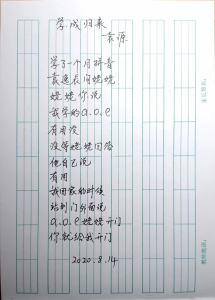 学成归来
袁源
学了一个月拼音
袁逸辰问姥姥
姥姥你说
我学的a.o.e
有用没
没等姥姥回答
他自己说
有用
我回家的时候
站到门外面说
a.o.e姥姥开门
你就给我开门
2020.8.14